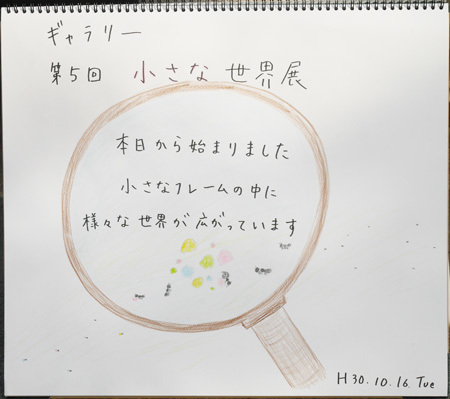 ギャラリー
第5回 小さな世界展
本日から始まりました
小さなフレームの中に
様々な世界が広がっています
H30.10.16.Tue